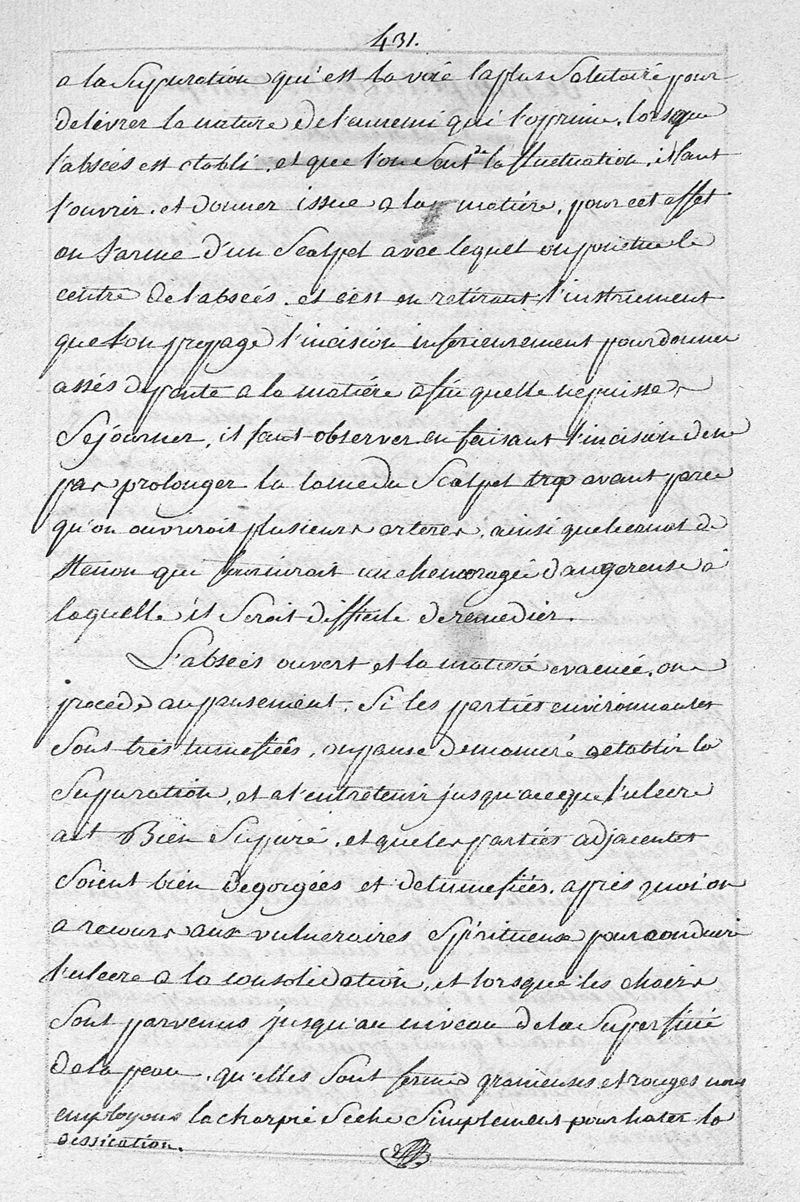 431.
a la Supuration qui est la voie la plus Salutaire pour
delivrer la nature de l'ennemi qui l'oprime, lorsque
l'abscés est etabli, et que l'on Sent de la fluctuation, il faut
l'ouvrir, et donner issue a la matiére, pour cet effet
on s'arme d'un Scalpel avec lequel on ponctue le
centre de l'abscés, et c'est en retirant l'instrument
que l'on propage l'incision inferieurement pour donner
assés de pente a la matiére afin quelle ne puisse
Sejourner, il faut observer en faisant l'incision de ne
pas prolonger la lame du Scalpel trop avant parce
qu'on ouvriroit plusieurs arteres, ainsi que le canal de
Stenon qui une hemoragie dangereuse a
laquelle il Seroit difficile de remedier.
L'abscés ouvert et la matiére evacuée, on
procede au pansement, Si les parties environnantes
Sont trés tumefiées, on panse de maniére a etablir la
Supuration, et a l'entretenir jusqu'a ce que l'ulcere
ait Bien Supuré, et que les parties adjacentes
Soient bien degorgées et detumefiées, aprés quoi on
a recours aux vulneraires Spiritueux pour conduire
l'ulcere a la consolidation, et lorsque les chairs
Sont parvenus jusqu'au niveau de la Superficie
de la peau, qu'elles Sont fermes grenieuses et rouges nous
employons la charpie Seche Simplement pour hater la
dessication.